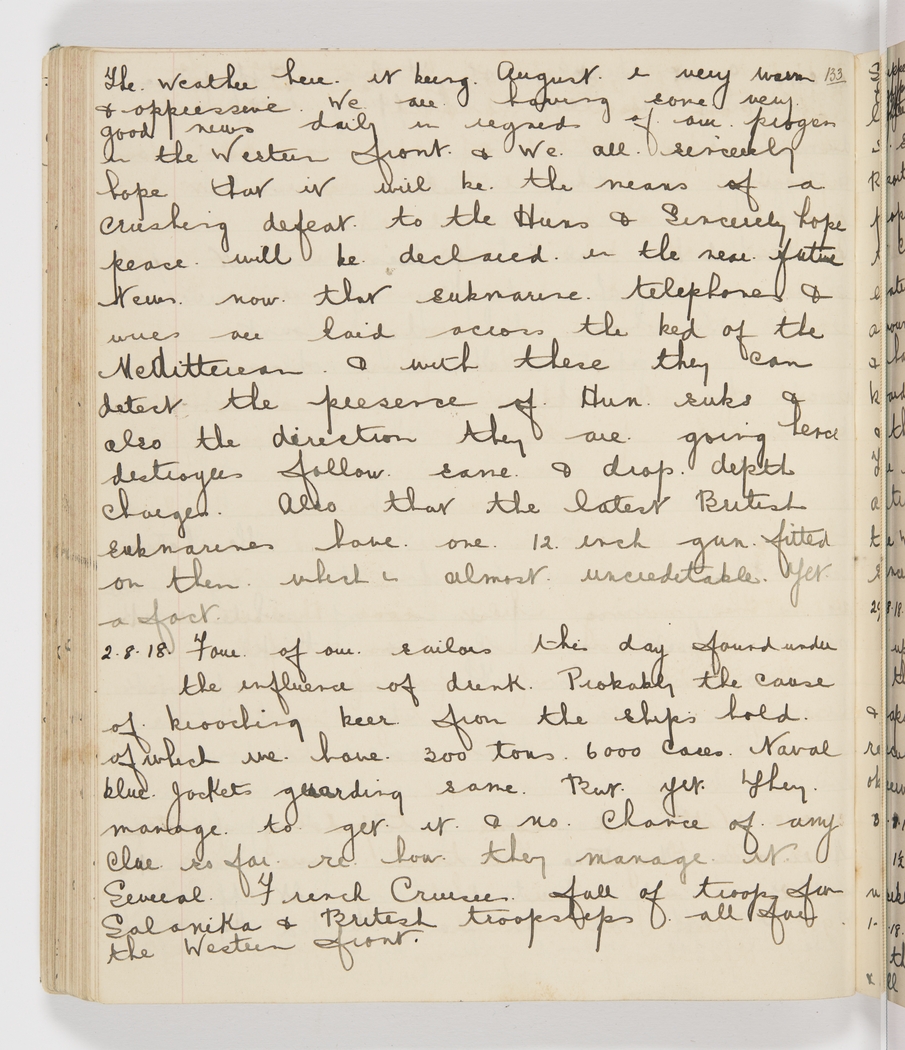 The weather here. it being. August. is very warm 133
& oppressive. We are having some very.
good news daily in regards of our progess
in the Western front. & We. all. sincerely
hope that it will be. the means of a
Crushing defeat. to the Huns & Sincerely hope
peace. will be declared. in the near future
News. now. that submarine. telephones &
wires are laid across the bed of the
Meditterean. & with these they can
detect the presence of. Hun. subs &
also the direction they are. going hence
destroyers follow. same. & drop. depth
Charges. Also that the latest British
submarines have. one. 12. inch gun. fitted
on them. which is almost. uncreditable. Yet.
a fact.
2.8.18. Four. of our. sailors this day found under
the influence of drink. Probably the cause
of. brooching beer from the ships hold.
of which we. have. 300 tons. 6000 Cases. Naval
blue. Jackets guarding same. But. yet. They.
manage. to get it & no. Chance of any
Clue so far. re. how. they manage it.
Several. French Cruiser. full of troops for
Salanika & British troopships. all for
the Western front.